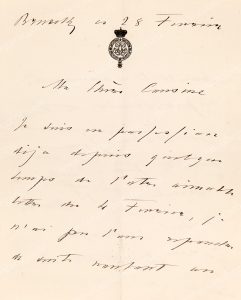 Bruxelles ce 28 Février
Ma Chère Cousine
Je suis en possession
déjà depuis quelque
temps de l'otre aimable
lettre du 4 Février, je
n'ai pu l'ous répondre
de suite voulant